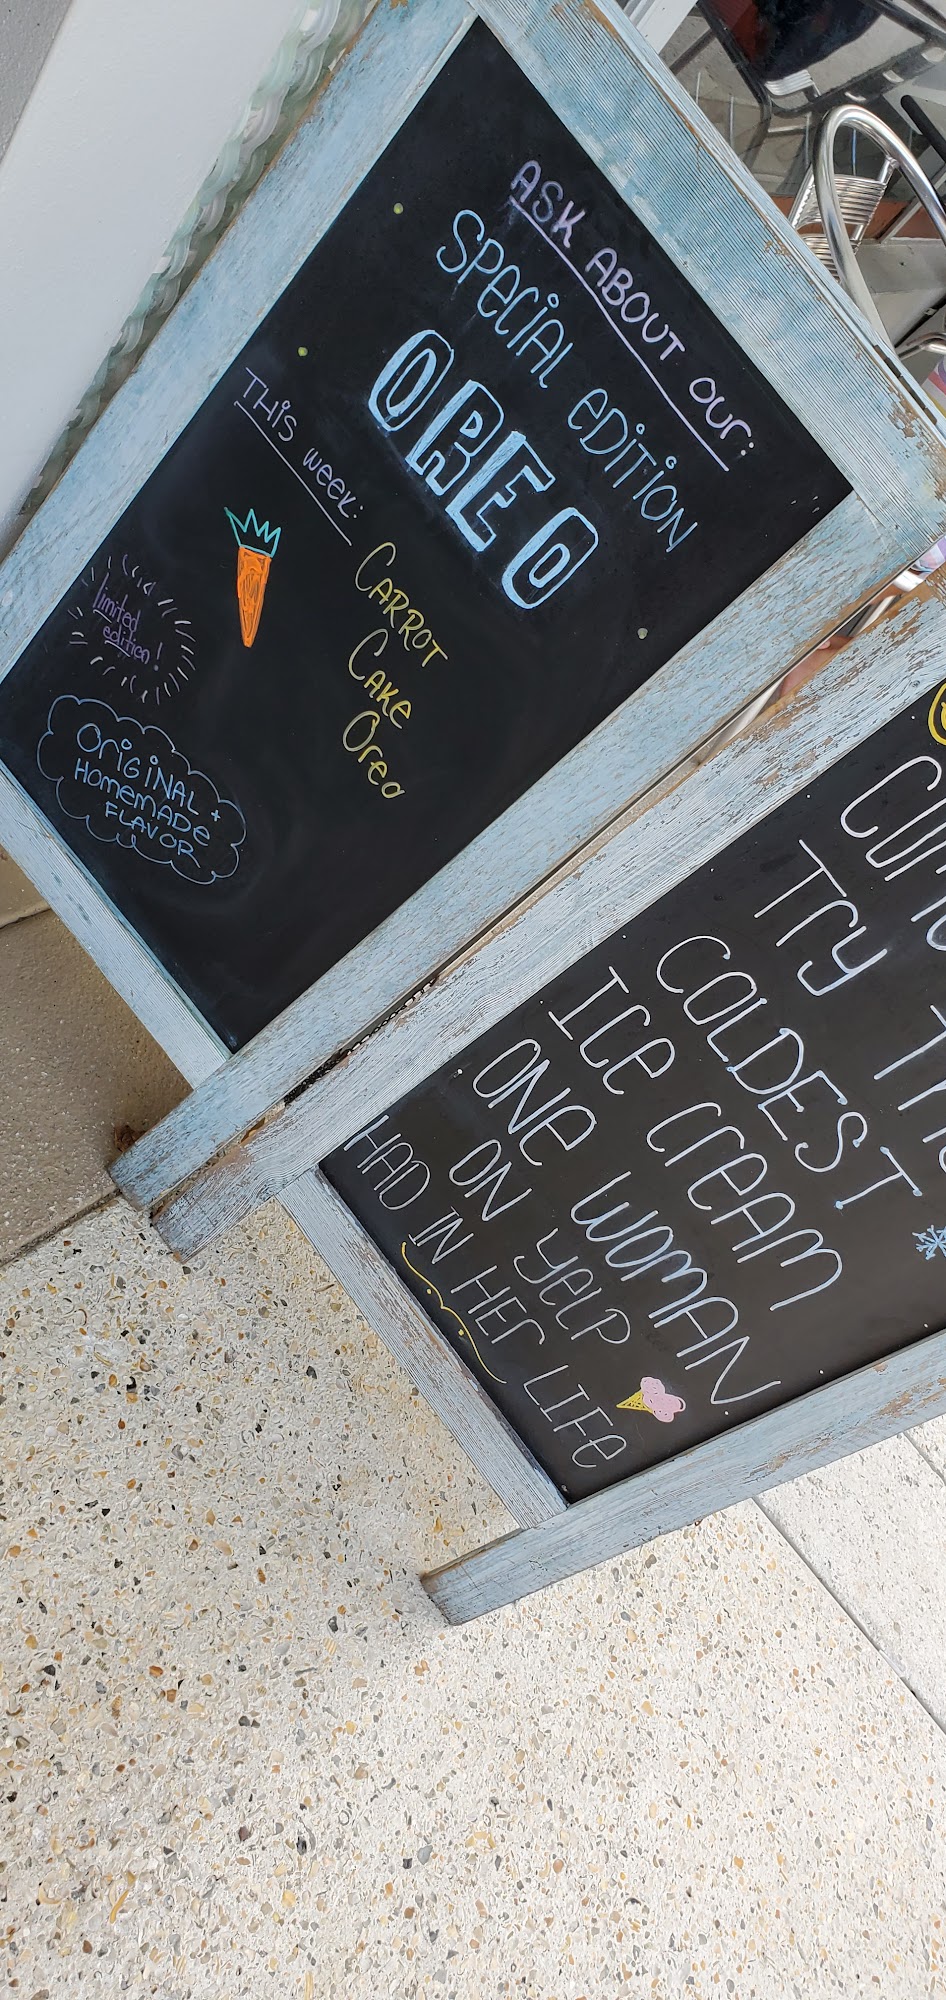 ASK ABOUT OUR:
SPECIAL EDITION
OREO
THIS WEEK:
CARROT
CAKE
OREO
limited
edition!
ORIGINAL +
HOMEMADE
FLAVOR
TRY
COLDEST
ICE CREAM
ONE WOMAN
ON YELP
HAD IN HER LIFE